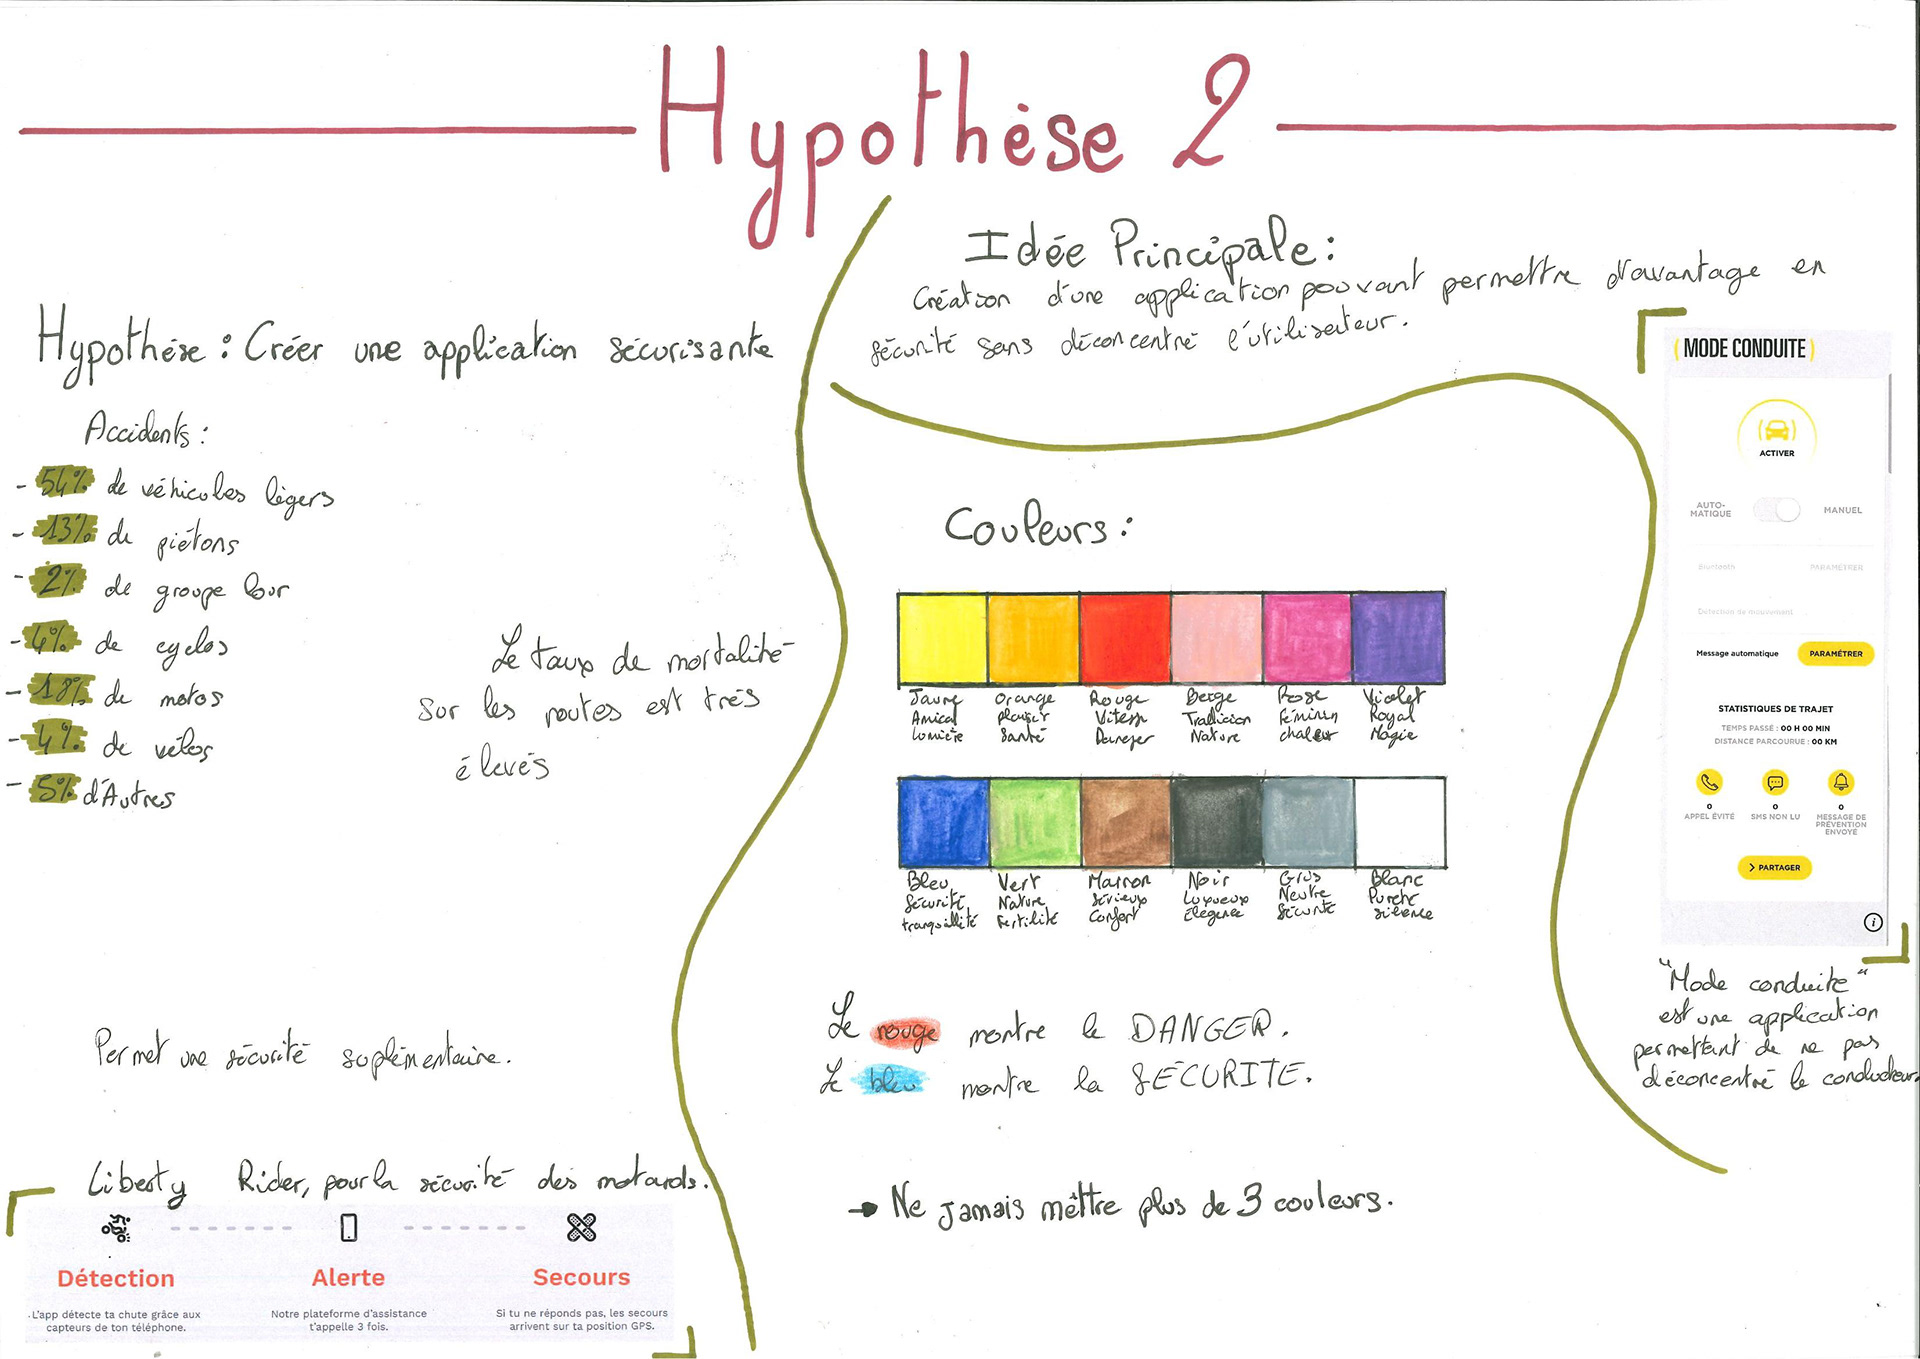 Hypothèse 2
Hypothèse : Créer une application sécurisante
Accidents :
- 54% de véhicules légers
- 13% de piétons
- 2% de groupe lour
- 4% de cyclos
- 18% de motos
- 4% de vélos
- 5% d'Autres
Le taux de mortalité
sur les routes est très
élevés
Permet une sécurité suplémentaire.
Liberty Rider, pour la sécurité des motards.
Détection
L'app détecte ta chute grâce aux
capteurs de ton téléphone.
Alerte
Notre plateforme d'assistance
t'appelle 3 fois.
Secours
Si tu ne réponds pas, les secours
arrivent sur ta position GPS.
Idée Principale :
Création d'une application pouvant permettre d'avantage en
sécurité sans déconcentré l'utilisateur.
Couleurs :
Jaune
Amical
Lumière
Orange
plaisir
Santé
Rouge
Vitesse
Danger
Beige
Tradition
Nature
Rose
Féminin
chaleur
Violet
Royal
Magie
Bleu
Sécurité
tranquillité
Vert
Nature
Fertilité
Marron
Sérieux
Confort
Noir
Luxueux
Elégence
Gris
Neutre
Sécurité
Blanc
Pureté
silence
Le rouge montre le DANGER.
Le bleu montre la SÉCURITE.
→ Ne jamais mêttre plus de 3 couleurs.
(MODE CONDUITE)
ACTIVER
AUTO-
MATIQUE
MANUEL
Bluetooth PARAMÉTRER
Détection de mouvement
Message automatique PARAMÉTRER
STATISTIQUES DE TRAJET
TEMPS PASSÉ : 00 H 00 MIN
DISTANCE PARCOURUE : 00 KM
0
APPEL ÉVITÉ
0
SMS NON LU
0
MESSAGE DE
PRÉVENTION
ENVOYÉ
> PARTAGER
i
"Mode conduite"
est une application
permettant de ne pas
déconcentré le conducteur.